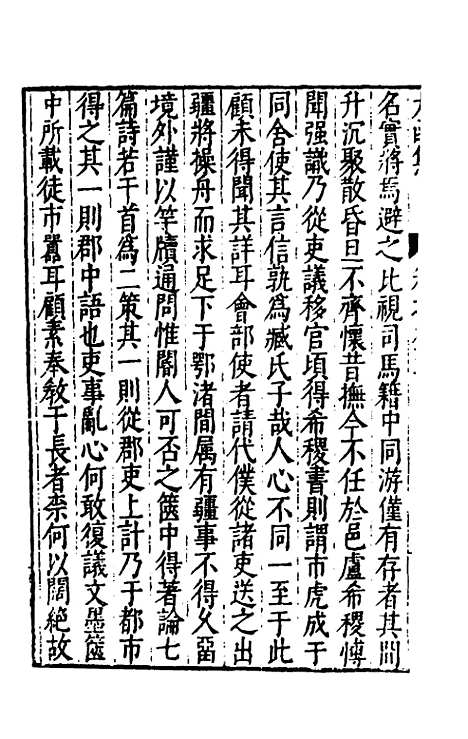 名實將焉避之比視司馬籍中同游僅有存者其間
升沉聚散昏旦不齊懷昔撫今不任於邑盧希稷愽
聞强識乃從吏議移官頃得希稷書則謂市虎成于
同舍使其言信孰爲臧氏子哉人心不同一至于此
顧未得聞其詳耳會部使者請代僕從諸吏送之出
疆將操舟而求足下于鄂渚間属有疆事不得久畱
境外謹以竿牘通問惟閽人可否之篋中得著論七
篇詩若干首爲二策其一則從郡吏上計乃于都市
得之其一則郡中語也吏事亂心何敢復議文墨篋
中所載徒市嚚耳顧素奉敎于長者柰何以闊絶故